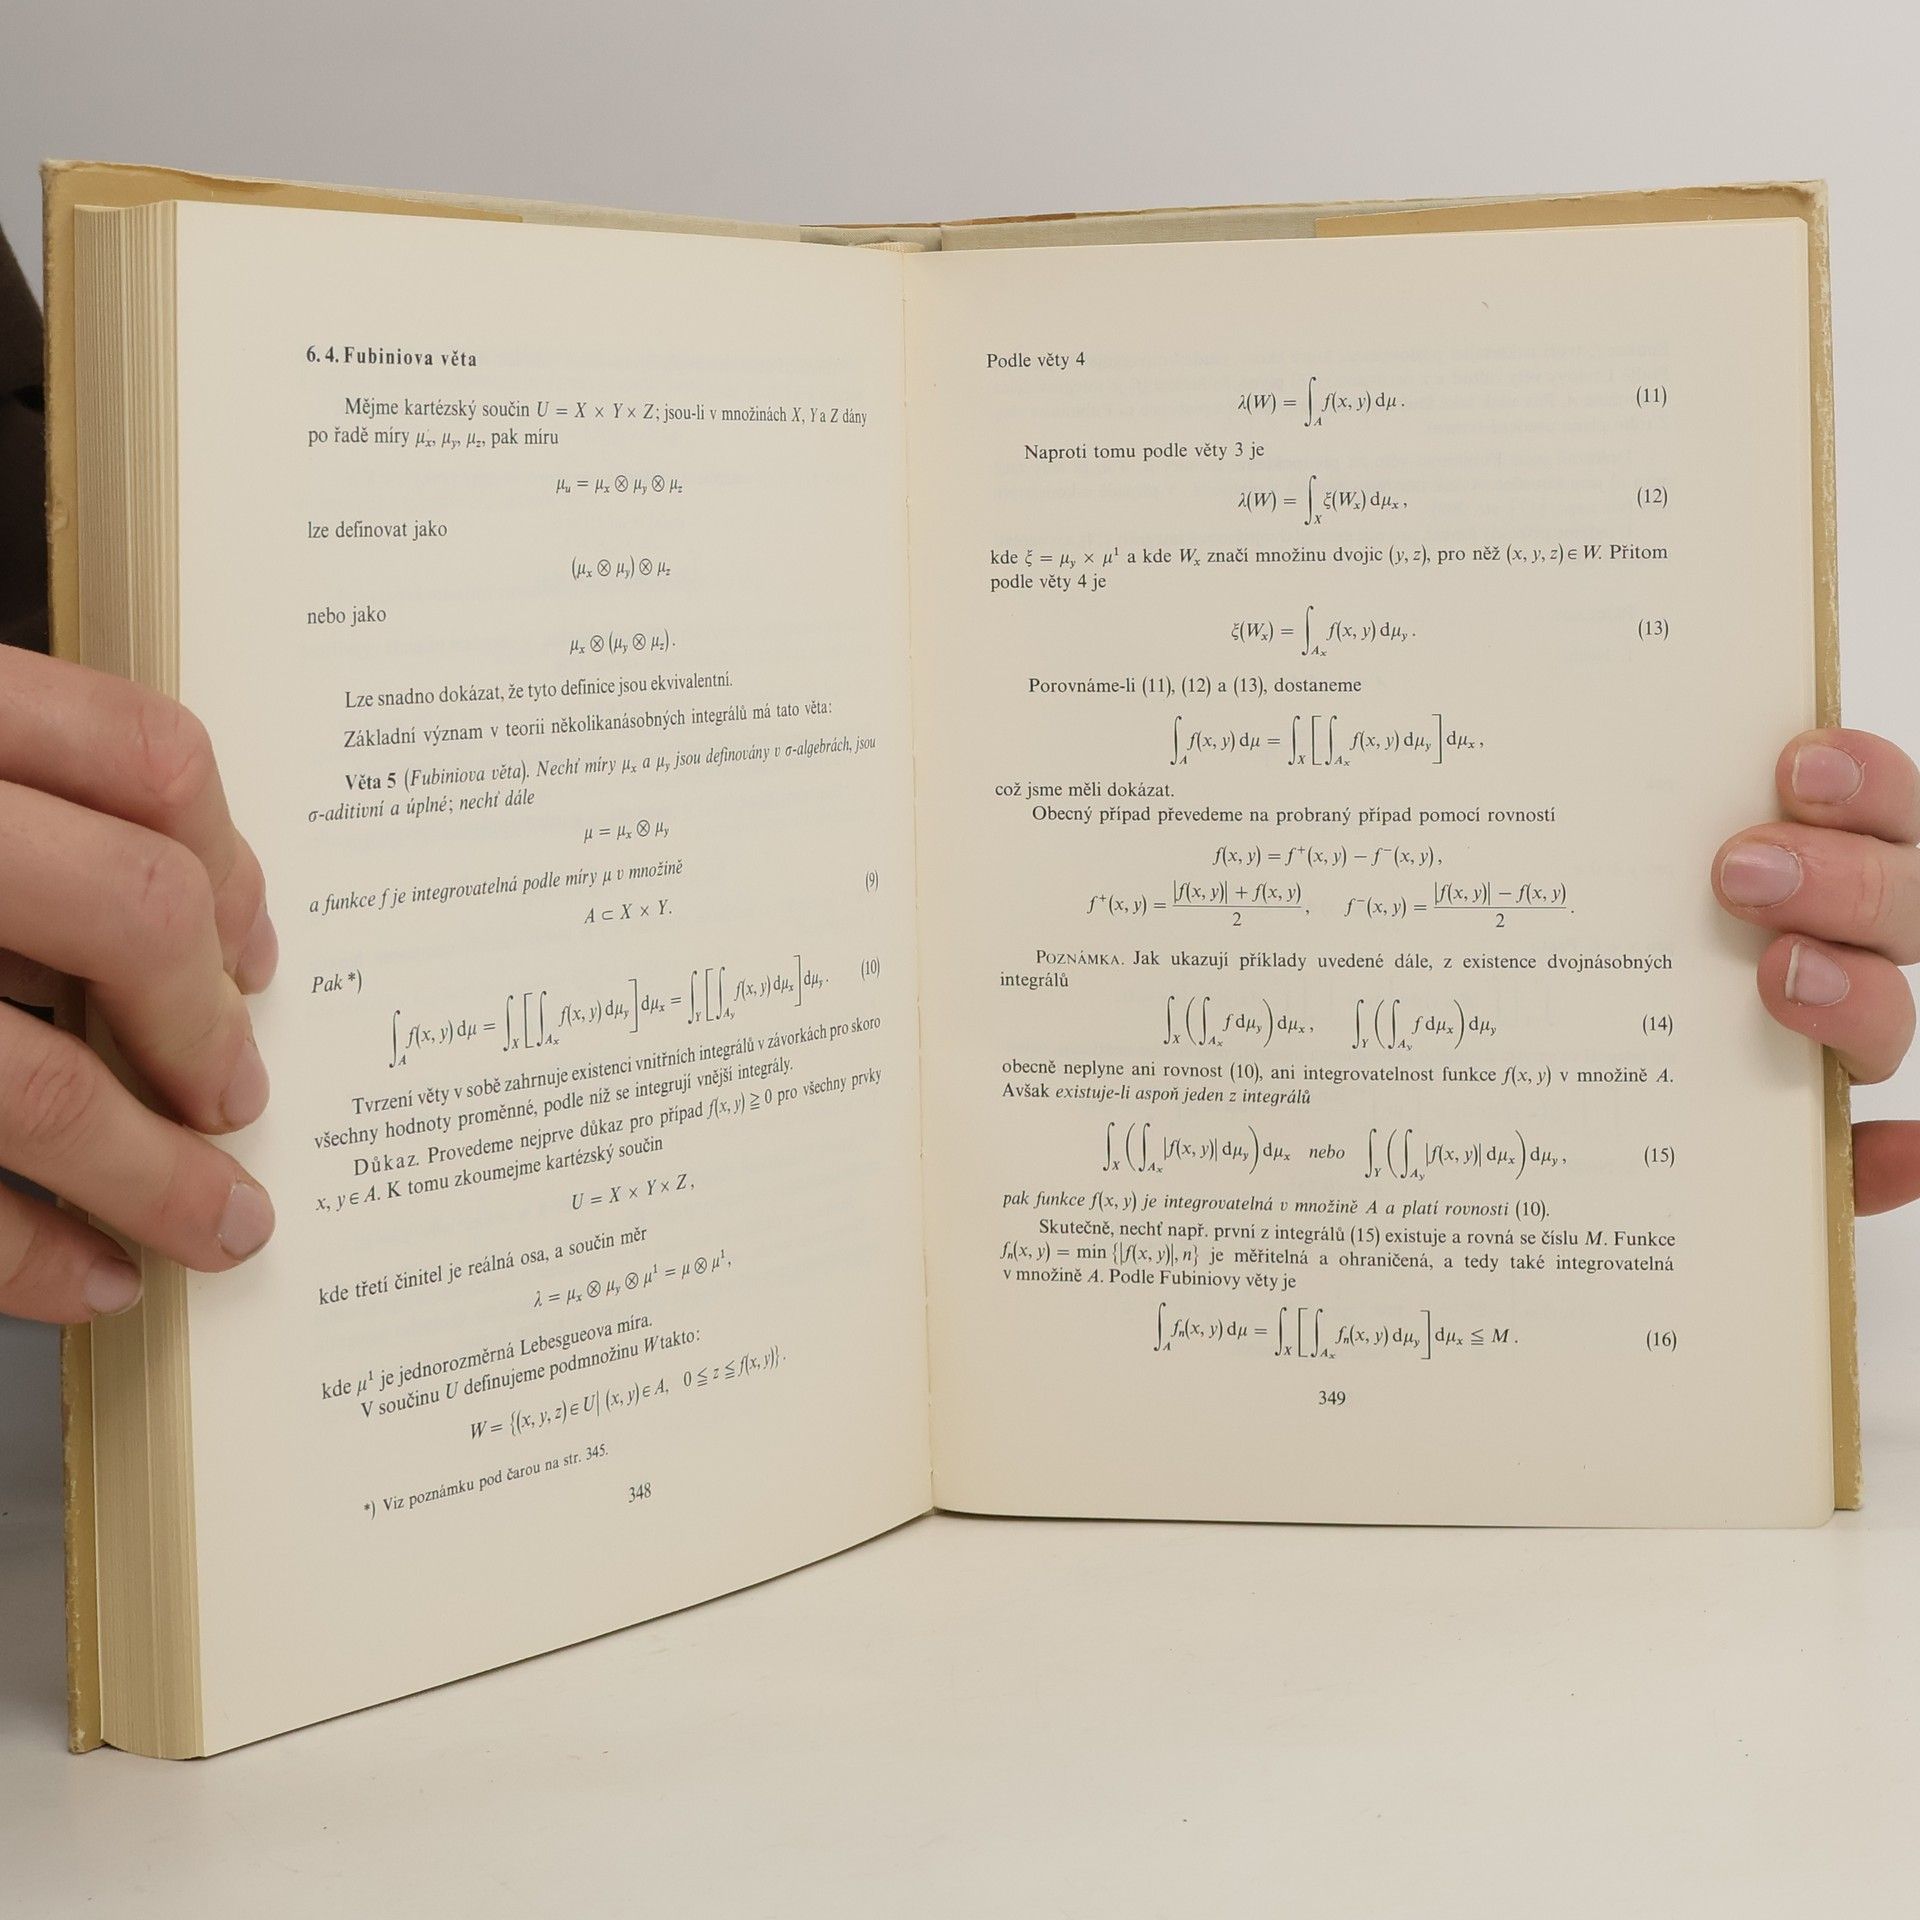 6. 4. Fubiniova věta
Mějme kartézský součin U = X × Y × Z; jsou-li v množinách X, Y a Z dány
po řadě míry μₓ, μ_y, μ_z, pak míru
μ_u = μₓ ⊗ μ_y ⊗ μ_z
lze definovat jako
(μₓ ⊗ μ_y) ⊗ μ_z
nebo jako
μₓ ⊗ (μ_y ⊗ μ_z).
Lze snadno dokázat, že tyto definice jsou ekvivalentní.
Základní význam v teorii několikanásobných integrálů má tato věta:
Věta 5 (Fubiniova věta). Nechť míry μₓ a μ_y jsou definovány v σ-algebrách, jsou
σ-aditivní a úplné; nechť dále
μ = μₓ ⊗ μ_y
a funkce f je integrovatelná podle míry μ v množině
A ⊂ X × Y. (9)
Pak *)
∫_A f(x, y) dμ = ∫_X [∫_{Aₓ} f(x, y) dμ_y] dμₓ = ∫_Y [∫_{A_y} f(x, y) dμₓ] dμ_y. (10)
Tvrzení věty v sobě zahrnuje existenci vnitřních integrálů v závorkách pro skoro
všechny hodnoty proměnné, podle níž se integrují vnější integrály.
Důkaz. Provedeme nejprve důkaz pro případ f(x, y) ≧ 0 pro všechny prvky
x, y ∈ A. K tomu zkoumejme kartézský součin
U = X × Y × Z,
kde třetí činitel je reálná osa, a součin měr
λ = μₓ ⊗ μ_y ⊗ μ¹ = μ ⊗ μ¹,
kde μ¹ je jednorozměrná Lebesgueova míra.
V součinu U definujeme podmnožinu W takto:
W = {(x, y, z) ∈ U| (x, y) ∈ A, 0 ≦ z ≦ f(x, y)}.
*) Viz poznámku pod čarou na str. 345.
348
Podle věty 4
λ(W) = ∫_A f(x, y) dμ. (11)
Naproti tomu podle věty 3 je
λ(W) = ∫_X ξ(Wₓ) dμₓ, (12)
kde ξ = μ_y × μ¹ a kde Wₓ značí množinu dvojic (y, z), pro něž (x, y, z) ∈ W. Přitom
podle věty 4 je
ξ(Wₓ) = ∫_{Aₓ} f(x, y) dμ_y. (13)
Porovnáme-li (11), (12) a (13), dostaneme
∫_A f(x, y) dμ = ∫_X [∫_{Aₓ} f(x, y) dμ_y] dμₓ,
což jsme měli dokázat.
Obecný případ převedeme na probraný případ pomocí rovností
f(x, y) = f⁺(x, y) − f⁻(x, y),
f⁺(x, y) = (|f(x, y)| + f(x, y))/2, f⁻(x, y) = (|f(x, y)| − f(x, y))/2.
POZNÁMKA. Jak ukazují příklady uvedené dále, z existence dvojnásobných
integrálů
∫_X (∫_{Aₓ} f dμ_y) dμₓ, ∫_Y (∫_{A_y} f dμₓ) dμ_y (14)
obecně neplyne ani rovnost (10), ani integrovatelnost funkce f(x, y) v množině A.
Avšak existuje-li aspoň jeden z integrálů
∫_X (∫_{Aₓ} |f(x, y)| dμ_y) dμₓ nebo ∫_Y (∫_{A_y} |f(x, y)| dμₓ) dμ_y, (15)
pak funkce f(x, y) je integrovatelná v množině A a platí rovnosti (10).
Skutečně, nechť např. první z integrálů (15) existuje a rovná se číslu M. Funkce
fₙ(x, y) = min {|f(x, y)|, n} je měřitelná a ohraničená, a tedy také integrovatelná
v množině A. Podle Fubiniovy věty je
∫_A fₙ(x, y) dμ = ∫_X [∫_{Aₓ} fₙ(x, y) dμ_y] dμₓ ≦ M. (16)
349